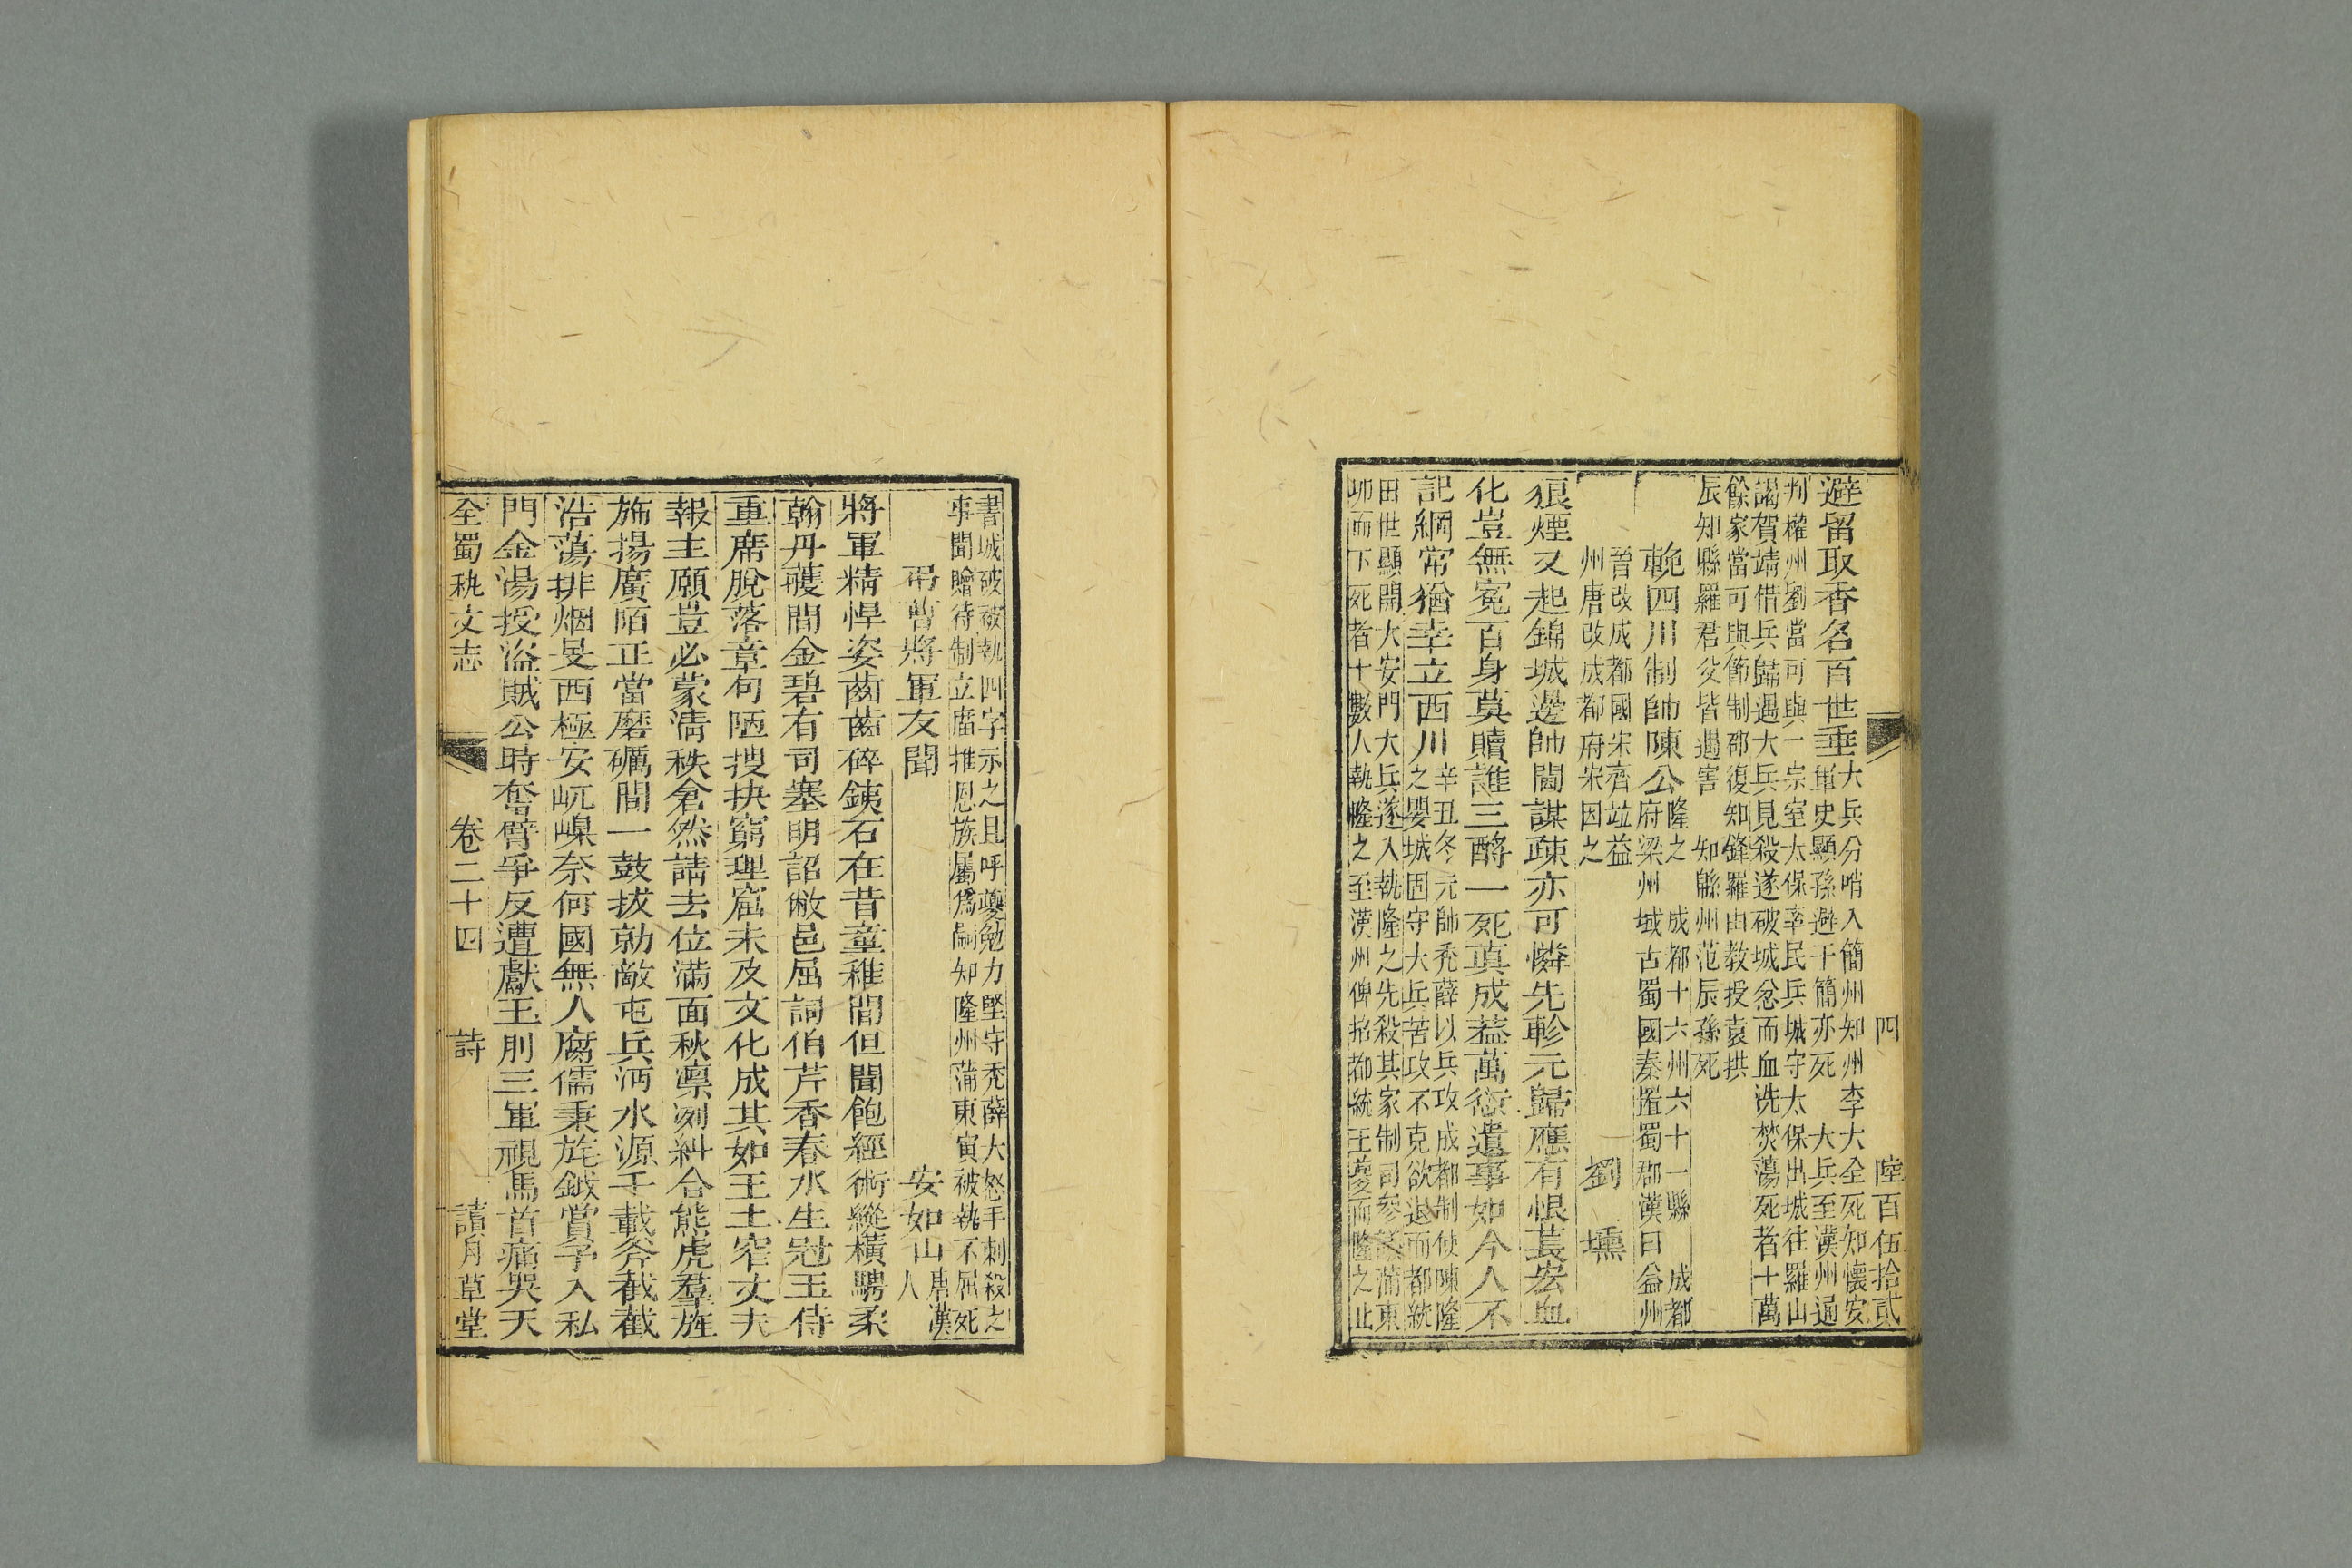 四　陸百伍拾貳
避留取香名百世垂大兵分哨入簡州知州李大全死知懷安
軍史顯孫避干簡亦死　大兵至漢州通
判權州劉當可與一宗室太保率民兵城守太保出城往羅山
謁賀靖借兵歸遇大兵見殺遂破城忿而血洗焚蕩死者十萬
餘家當可與節制邵復知鋒羅由教授袁拱
辰知縣羅君父皆遇害　知緜州范辰孫死
輓四川制帥陳公隆之　成都十六州六十一縣　成都
府梁州域古蜀國秦置蜀郡漢曰益州
晉改成都國宋齊竝益
州唐改成都府宋因之
劉　壎
狼煙又起錦城邊帥閫謀疎亦可憐先軫元歸應有恨萇宏血
化豈無冤百身莫贖誰三酹一死真成葢萬愆遺事如今人不
記綱常猶幸立西川辛丑冬元帥禿薛以兵攻成都制使陳隆
之嬰城固守大兵苦攻不克欲退而都統
田世顯開大安門大兵遂入執隆之先殺其家制司參議蒲東
卯而下死者十數人執隆之至漢州俾招都統王夔而隆之止
書城破被執四字示之且呼夔勉力堅守禿薛大怒手刺殺之
事聞贈待制立廟推恩族屬爲嗣知隆州蒲東寅被執不屈死
弔曹將軍友聞　安如山唐漢
人
將軍精悍姿齒齒碎銕石在昔童稚間但聞飽經術縱橫騁柔
翰丹雘間金碧有司塞明詔敝邑屈詞伯芹香春水生冠玉侍
重席脫落章句陋搜抉窮理窟未及文化成其如王土窄丈夫
報主願豈必蒙淸秩倉然請去位滿面秋凛冽糾合熊虎羣旌
旆揚廣陌正當磨礪間一鼓拔勍敵屯兵沔水源千載斧截截
浩蕩排烟旻西極安屼嵲奈何國無人腐儒秉旄鉞賞予入私
門金湯授盗賊公時奮臂爭反遭獻玉刖三軍視馬首痛哭天
全蜀秇文志　卷二十四　詩　讀月草堂